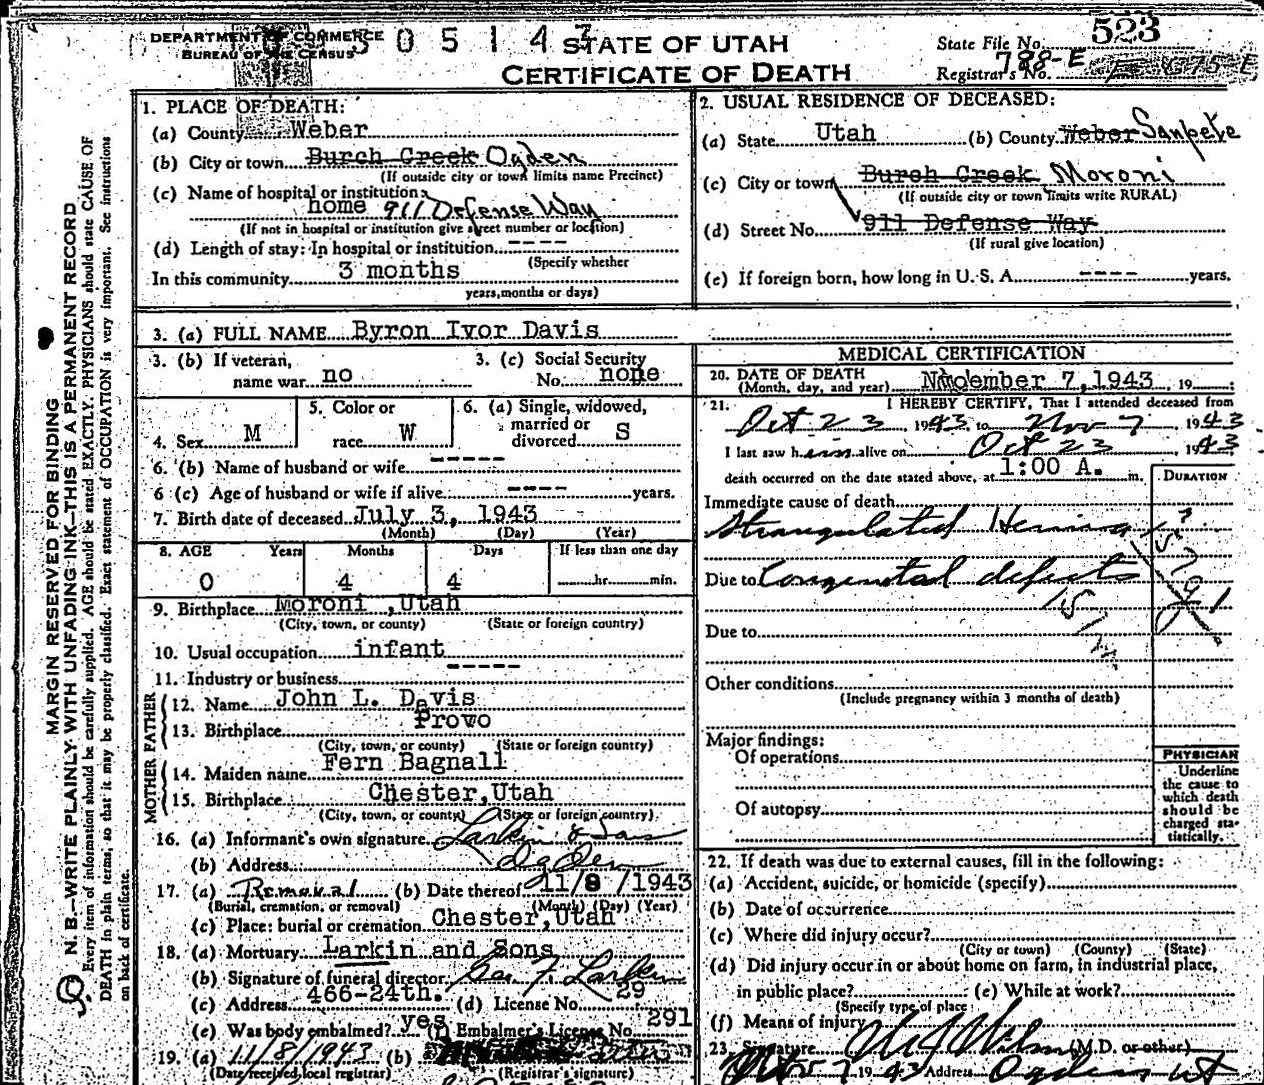 DEPARTMENT OF COMMERCE
BUREAU OF THE CENSUS
3 0 5 1 4
STATE OF UTAH
CERTIFICATE OF DEATH
State File No. 523
Registrar's No. 788-E
MARGIN RESERVED FOR BINDING
N. B.—WRITE PLAINLY WITH UNFADING INK—THIS IS A PERMANENT RECORD
Every item of information should be carefully supplied. AGE should be stated EXACTLY. PHYSICIANS should state CAUSE OF
DEATH in plain terms, so that it may be properly classified. Exact statement of OCCUPATION is very important. See instructions
on back of certificate.
1. PLACE OF DEATH:
(a) County Weber
(b) City or town Burch Creek Ogden
(If outside city or town limits name Precinct)
(c) Name of hospital or institution:
home 911 Defense Way
(If not in hospital or institution give street number or location)
(d) Length of stay: In hospital or institution ----
(Specify whether
In this community 3 months
years, months or days)
2. USUAL RESIDENCE OF DECEASED:
(a) State Utah (b) County Weber Sanpete
(c) City or town Burch Creek Moroni
(If outside city or town limits write RURAL)
(d) Street No. 911 Defense Way
(If rural give location)
(e) If foreign born, how long in U. S. A. ---- years.
3. (a) FULL NAME Byron Ivor Davis
3. (b) If veteran, name war no
3. (c) Social Security No. none
4. Sex M
5. Color or race W
6. (a) Single, widowed, married or divorced S
6. (b) Name of husband or wife -----
6 (c) Age of husband or wife if alive ---- years.
7. Birth date of deceased July 3, 1943
(Month) (Day) (Year)
8. AGE Years Months Days If less than one day
0 4 4 hr. min.
9. Birthplace Moroni, Utah
(City, town, or county) (State or foreign country)
10. Usual occupation infant
11. Industry or business -----
FATHER
12. Name John L. Davis
13. Birthplace Provo
(City, town, or county) (State or foreign country)
MOTHER
14. Maiden name Fern Bagnall
15. Birthplace Chester, Utah
(City, town, or county) (State or foreign country)
16. (a) Informant's own signature Larkin & Sons
(b) Address Ogden
17. (a) Removal (b) Date thereof 11/8/1943
(Burial, cremation, or removal) (Month) (Day) (Year)
(c) Place: burial or cremation Chester, Utah
18. (a) Mortuary Larkin and Sons
(b) Signature of funeral director Larkin
(c) Address 466-24th. (d) License No. 29
(e) Was body embalmed? yes (f) Embalmer's License No. 291
19. (a) 11/8/1943 (b)
(Date received local registrar) (Registrar's signature)
MEDICAL CERTIFICATION
20. DATE OF DEATH
(Month, day, and year) November 7, 1943, 19 ;
21. I HEREBY CERTIFY, That I attended deceased from
Oct 23, 1943 to Nov 7, 1943
I last saw him alive on Oct 23, 1943
death occurred on the date stated above, at 1:00 A. m.
DURATION
Immediate cause of death
Strangulated Hernia
Due to Congenital defects
Due to
Other conditions
(Include pregnancy within 3 months of death)
Major findings:
Of operations
Of autopsy
PHYSICIAN
Underline
the cause to
which death
should be
charged sta-
tistically.
22. If death was due to external causes, fill in the following:
(a) Accident, suicide, or homicide (specify)
(b) Date of occurrence
(c) Where did injury occur?
(City or town) (County) (State)
(d) Did injury occur in or about home on farm, in industrial place,
in public place? (e) While at work?
(Specify type of place)
(f) Means of injury
23. Signature (M.D. or other)
Nov 7 1943 Address Ogden Ut